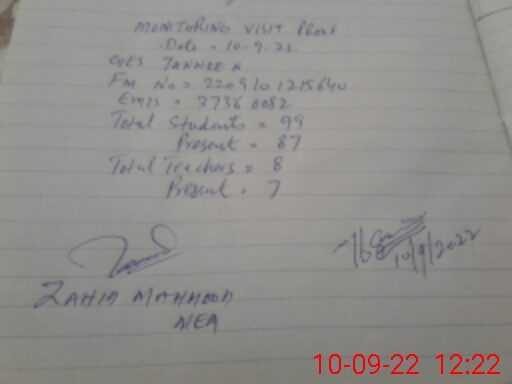 MONITORING VISIT PROOF
Date = 10-9-22
GES TANNEE A
FM No = 220910 1215640
Emis = 3736 0082
Total Students = 99
Present = 87
Total Teachers = 8
Present = 7
10/9/2022
ZAHID MAHMOOD
MEA
10-09-22 12:22